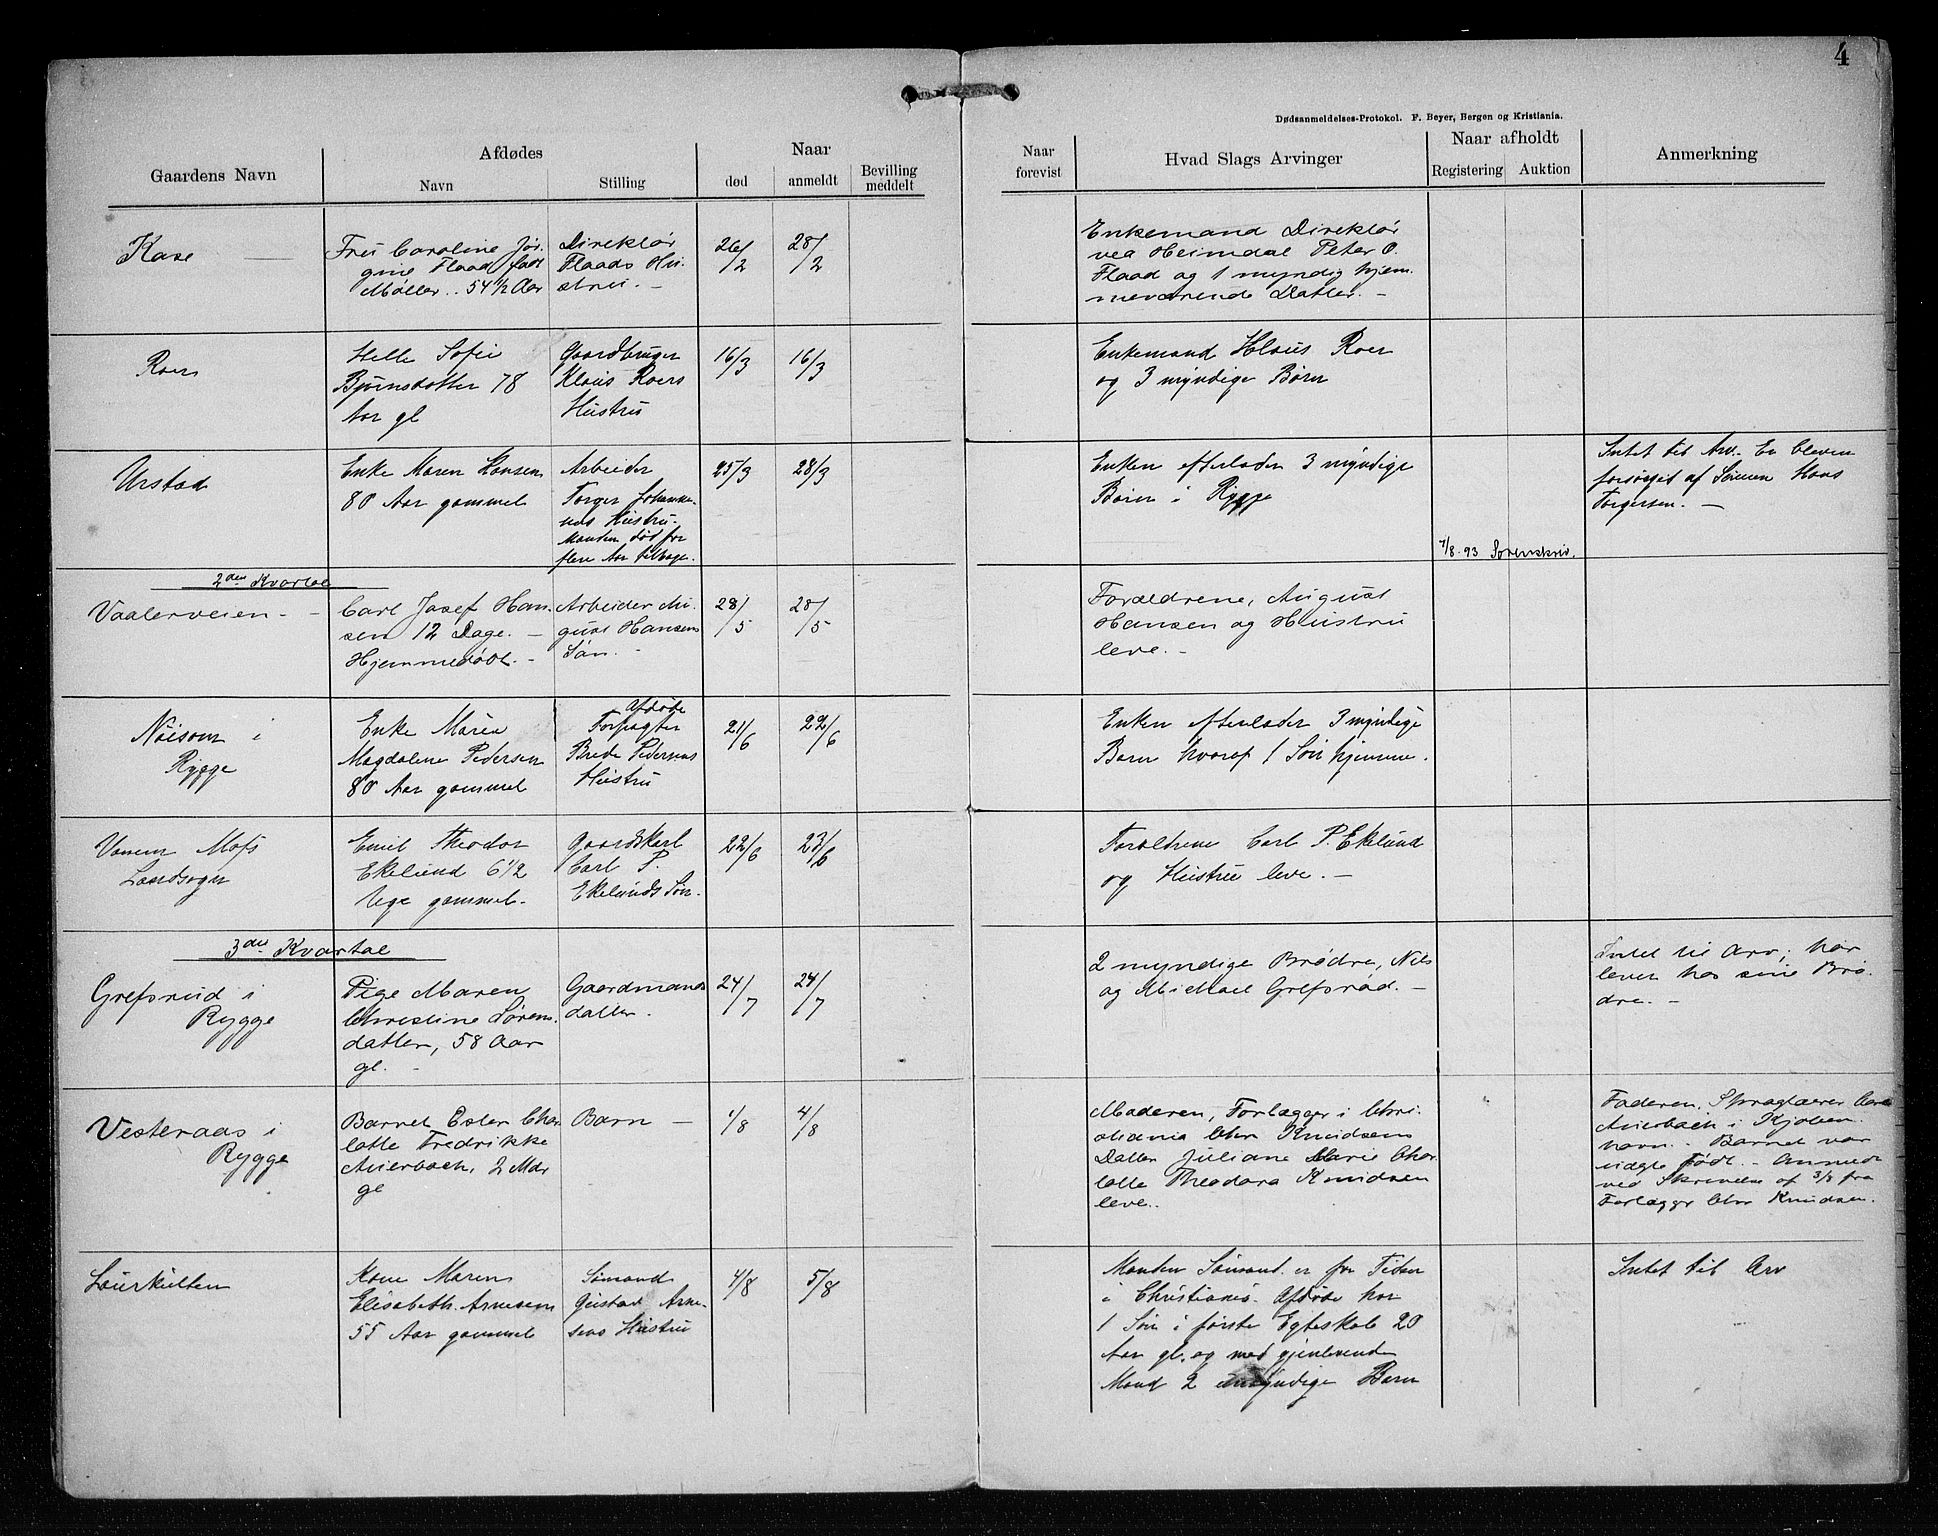 4
Dødsanmeldelses-Protokol. F. Beyer, Bergen og Kristiania.
Gaardens Navn
Afdødes
Navn
Stilling
Naar
død
anmeldt
Bevilling
meddelt
Naar
forevist
Hvad Slags Arvinger
Naar afholdt
Registering
Auktion
Anmerkning
Kase
Fru Caroline Jør-
gine Flaad født
Møller.. 54 1/2 Aar
Direktør
Flaads Hu-
stru. -
26/2
28/2
Enkemand Direktør
ved Heimdal Peter O.
Flaad og 1 myndig hjem-
meværende Datter. -
Roer
Helle Sofie
Bjørnsdatter 78
Aar gl
Gaardbruger
Klaus Roers
Hustru
16/3
16/3
Enkemand Klaus Roer
og 3 myndige Børn
Urstad
Enke Maren Hansen
80 Aar gammel
Arbeider
Torger Johannse-
nes Hustru.
Manden død for
flere Aar tilbage.
25/3
28/3
Enken efterlader 3 myndige
Børn i Rygge
7/8 93 Sorenskriv.
Intet til Arv. Er bleven
forsørget af Sønnen Hans
Torgersen. -
2den Kvartal
Vaalerveien -
Carl Josef Han-
sen 12 Dage. -
Hjemmedøbt. -
Arbeider Au-
gust Hansens
Søn. -
28/5
28/5
Forældrene, August
Hansen og Hustru
leve. -
Nøisom i
Rygge
Enke Maren
Magdalene Pedersen
80 Aar gammel
Afdøde
Forpagter
Brede Pedersens
Hustru
21/6
22/6
Enken efterlader 3 myndige
Børn hvoraf 1 Søn hjemme.
Vanem Mofs
Landsogn
Emil Theodor
Ekelund 6 1/2
Uge gammel.
Gaardskarl
Carl P.
Ekelunds Søn.
22/6
23/6
Foreldrene Carl P. Eklund
og Hustru leve. -
3die Kvartal
Grefsrud i
Rygge
Pige Maren
Christine Sørens-
datter, 58 Aar
gl. -
Gaardmands-
datter.
24/7
24/7
2 myndige Brødre, Nils
og Michael Grefsrød. -
Intet til Arv; har
levet hos sine Brø-
dre. -
Vesteraas i
Rygge
Barnet Ester Char
lotte Fredrikke
Auerbach, 2 Mdr
gl
Barn -
1/8
4/8
Moderen, Forlægger i Chri-
stiania Chr Knudsens
Datter Juliane Marie Char
lotte Theodora Knudsen
leve..
Faderen, Sproglærer Carl
Auerbach i Kjøben-
havn. - Barnet var
uægte født. - Anmeldt
ved Skrivelse af 3/8 fra
Forlægger Chr Knudsen.
Laurkulten
Kone Maren
Elisabeth Arnesen
55 Aar gammel
Sømand
Gustav Arne-
sens Hustru
4/8
5/8
Manden Sømand. er for Tiden
i Christiania. Afdøde har
1 Søn i første Egteskab 20
Aar gl. og med gjenlevende
Mand 2 umyndige Børn
Intet til Arv